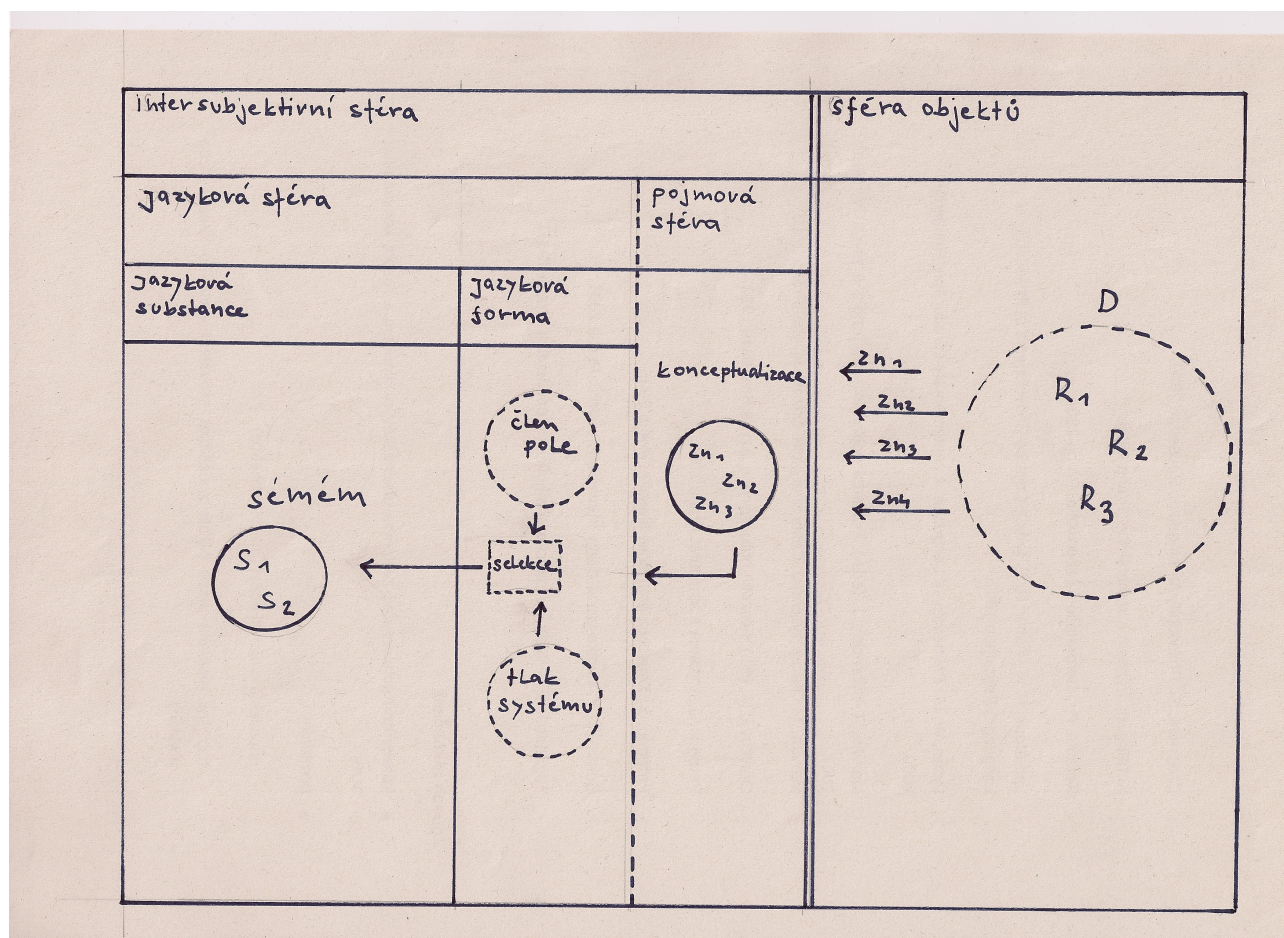 intersubjektivní sféra
sféra objektů
jazyková sféra
pojmová
sféra
jazyková
substance
jazyková
forma
D
konceptualizace
člen
pole
Zn1
Zn2
Zn3
zn1
zn2
zn3
zn4
R1
R2
R3
sémém
S1
S2
selekce
tlak
systému